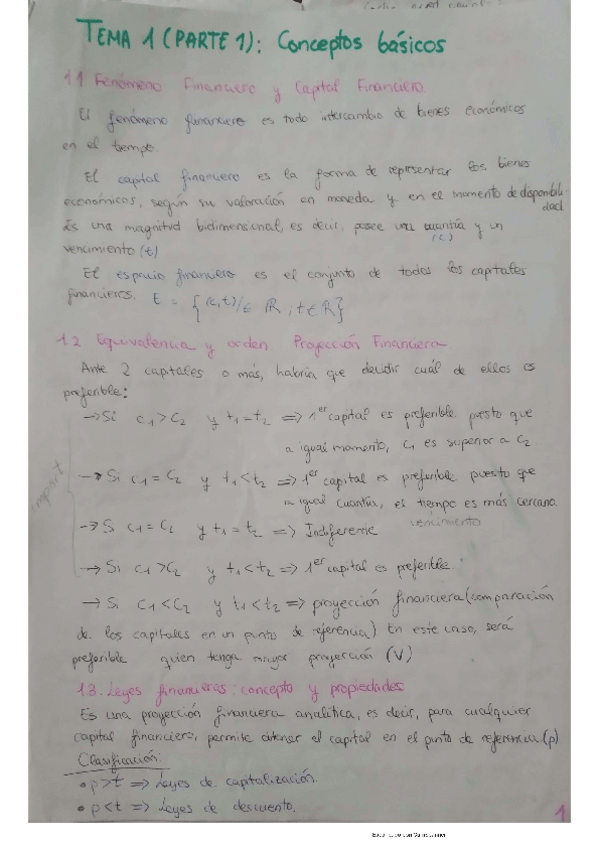 TEMA 1 (PARTE 1): Conceptos básicos
1.1 Fenómeno Financiero y Capital Financiero
El fenómeno financiero es todo intercambio de bienes económicos
en el tiempo.
El capital financiero es la forma de representar los bienes
económicos, según su valoración en moneda y en el momento de disponibili
dad
Es una magnitud bidimensional, es decir, posee una cuantía y un
(c)
vencimiento (t)
El espacio financiero es el conjunto de todos los capitales
financieros. E = {(c,t)/c∈ R ; t∈R}
1.2 Equivalencia y orden. Proyección Financiera
Ante 2 capitales o más, habría que decidir cuál de ellos es
preferible:
→ Si c1>c2 y t1=t2 => 1er capital es preferible puesto que
a igual momento, c1 es superior a c2
→ Si c1=c2 y t1<t2 => 1er capital es preferible puesto que
a igual cuantía, el tiempo es más cercano
import
vencimiento
→ Si c1=c2 y t1=t2 => Indiferente
→ Si c1>c2 y t1<t2 => 1er capital es preferible
→ Si c1<c2 y t1<t2 => proyección financiera (comparación
de los capitales en un punto de referencia) En este caso, será
preferible quien tenga mayor proyección (V)
1.3. Leyes financieras: concepto y propiedades
Es una proyección financiera analítica, es decir, para cualquier
capital financiero, permite obtener el capital en el punto de referencia (p)
Clasificación:
• p>t => Leyes de capitalización.
• p<t => Leyes de descuento.
1